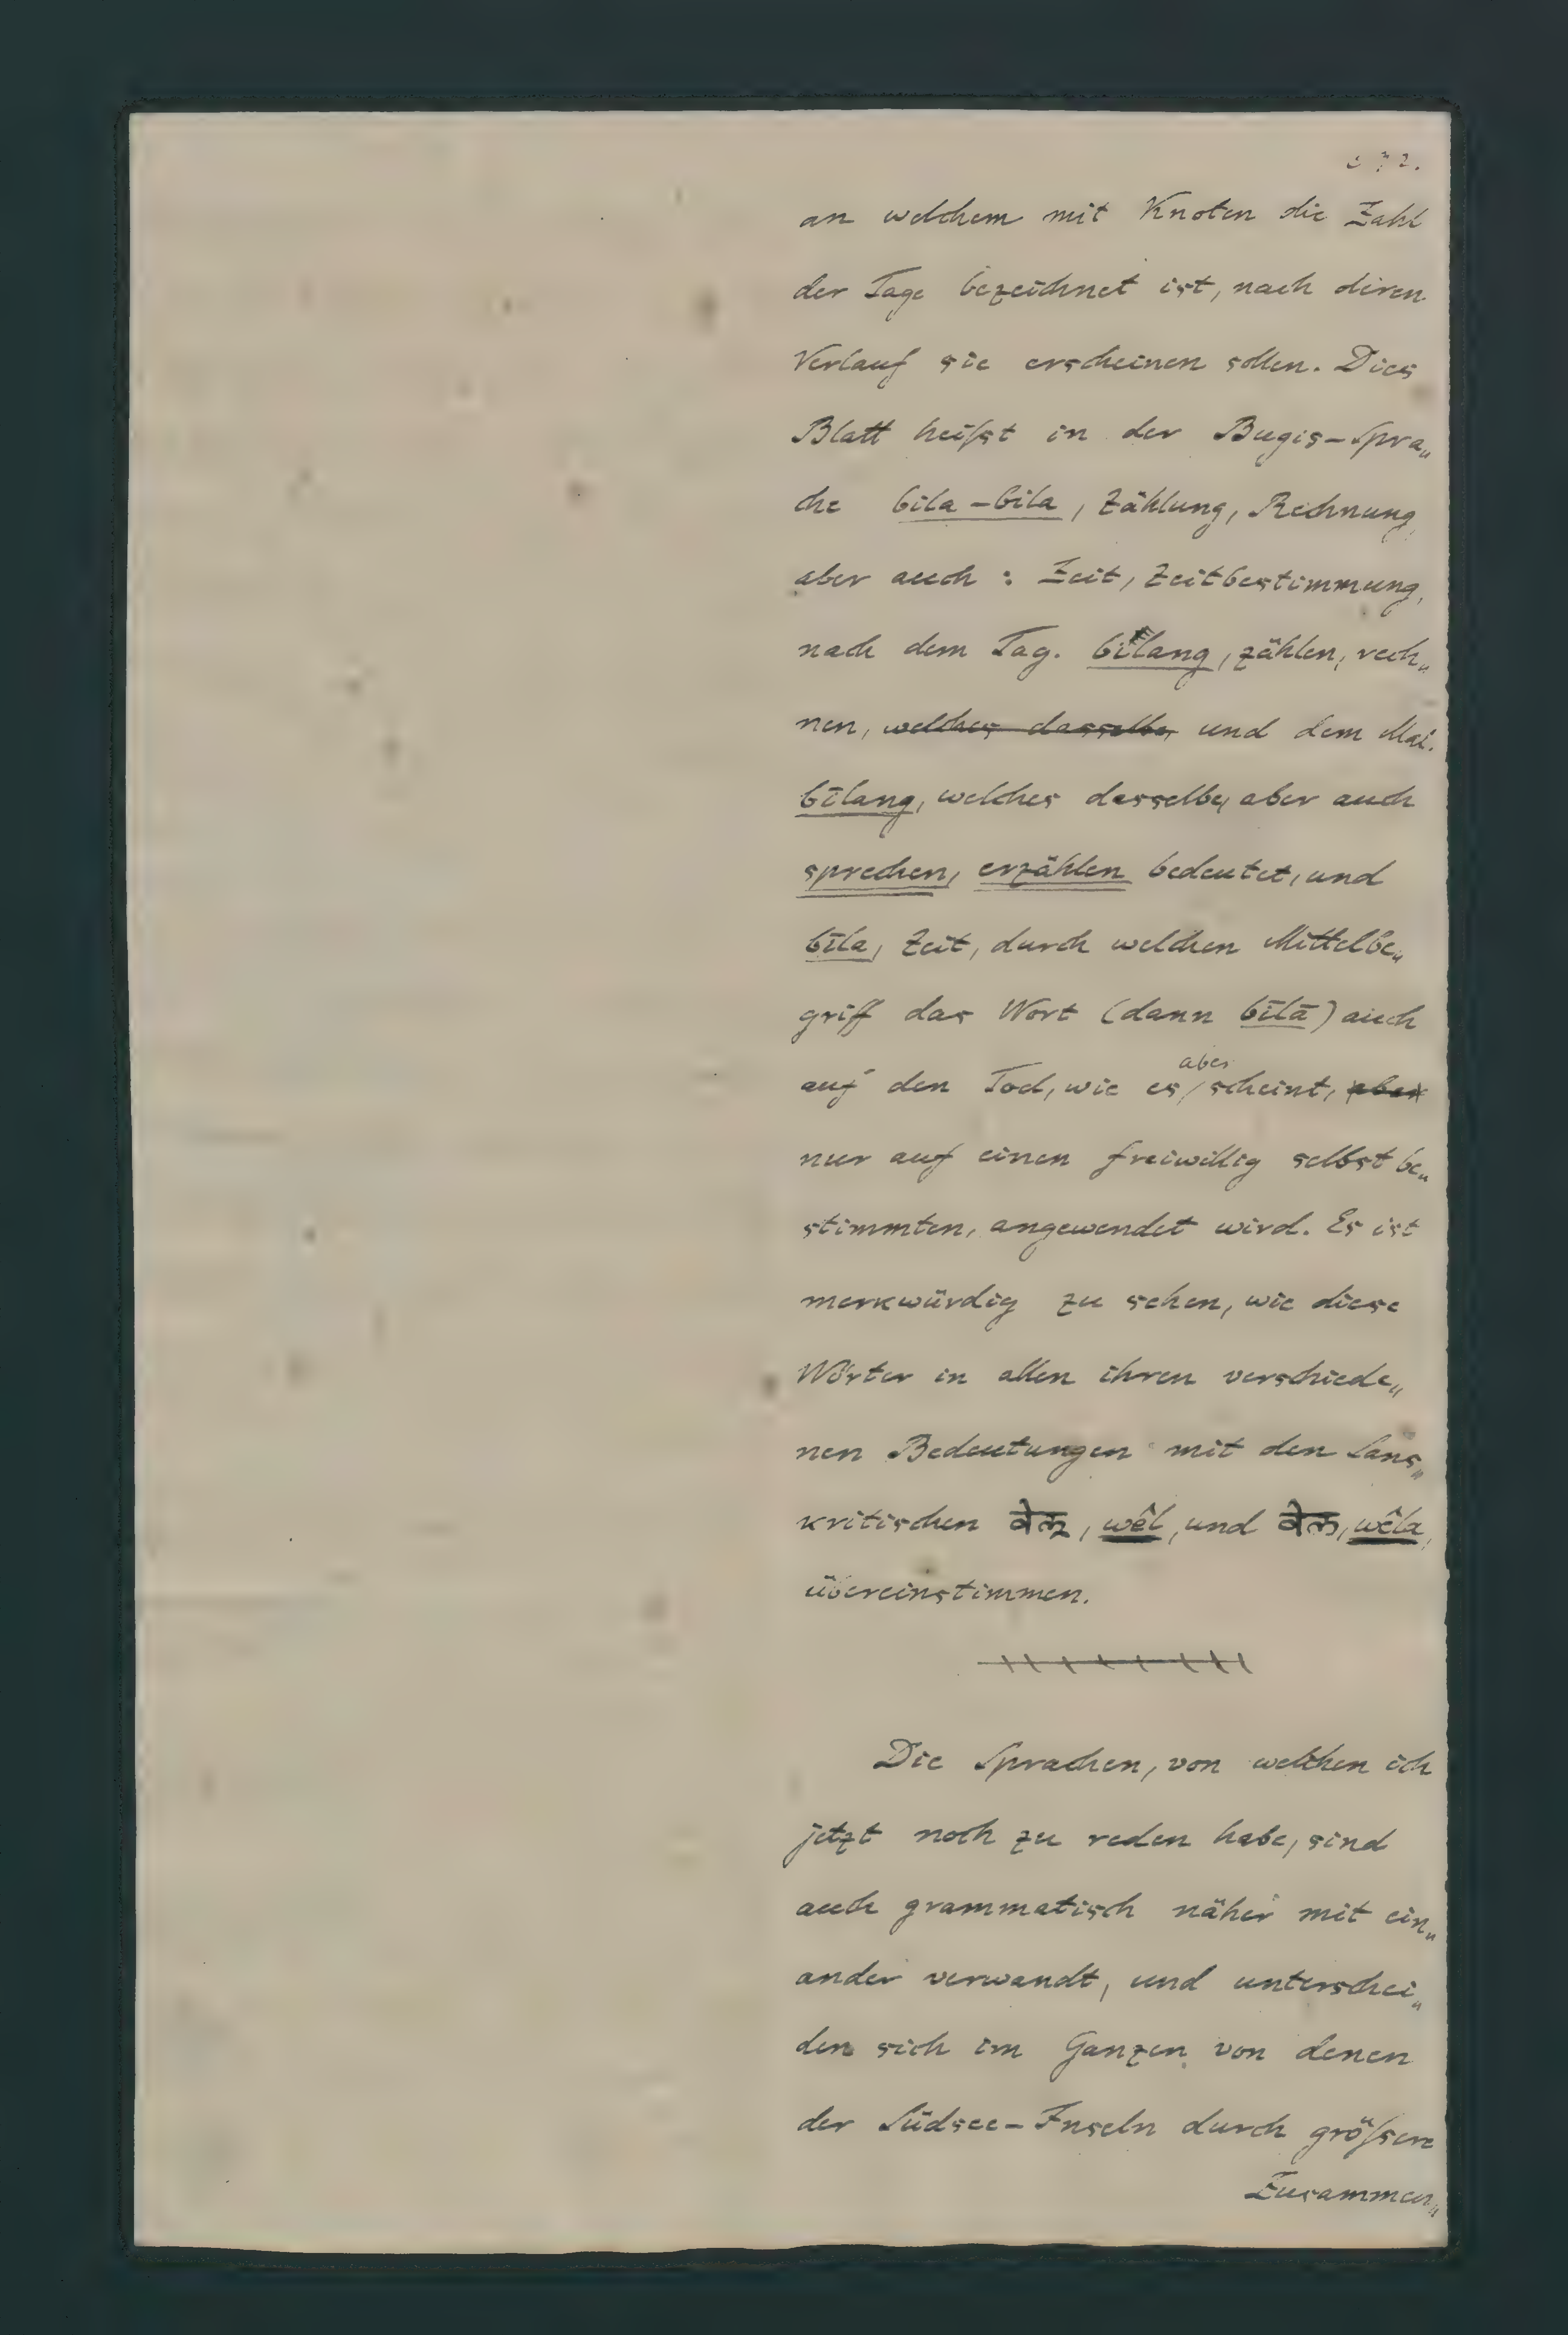 an welchem mit Knoten die Zahl
der Tage bezeichnet ist, nach deren
Verlauf sie erscheinen sollen. Dies
Blatt heißt in der Bugis-Spra„
che bila-bila, Zählung, Rechnung,
aber auch: Zeit, Zeitbestimmung,
nach dem Tag. bilang, zählen, rech„
nen, welches dasselbe, und dem Mal.
bīlang, welches dasselbe, aber auch
sprechen, erzählen bedeutet, und
bīla, Zeit, durch welchen Mittelbe„
griff das Wort (dann bīlā) auch
aber
auf den Tod, wie es scheint, aber
nur auf einen freiwillig selbst be„
stimmten, angewendet wird. Es ist
merkwürdig zu sehen, wie diese
Wörter in allen ihren verschiede„
nen Bedeutungen mit den Sans„
kritischen वेल्, wêl, und वेल, wêla,
übereinstimmen.
Die Sprachen, von welchen ich
jetzt noch zu reden habe, sind
auch grammatisch näher mit ein„
ander verwandt, und unterschei„
den sich im Ganzen von denen
der Südsee-Inseln durch größere
Zusammen„